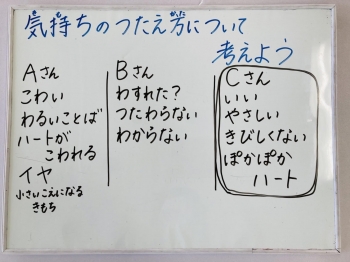 気持ちのつたえ方について
考えよう
Aさん
こわい
わるいことば
ハートが
こわれる
イヤ
小さいこえになる
きもち
Bさん
わすれた?
つたわらない
わからない
Cさん
いい
やさしい
きびしくない
ぽかぽか
ハート